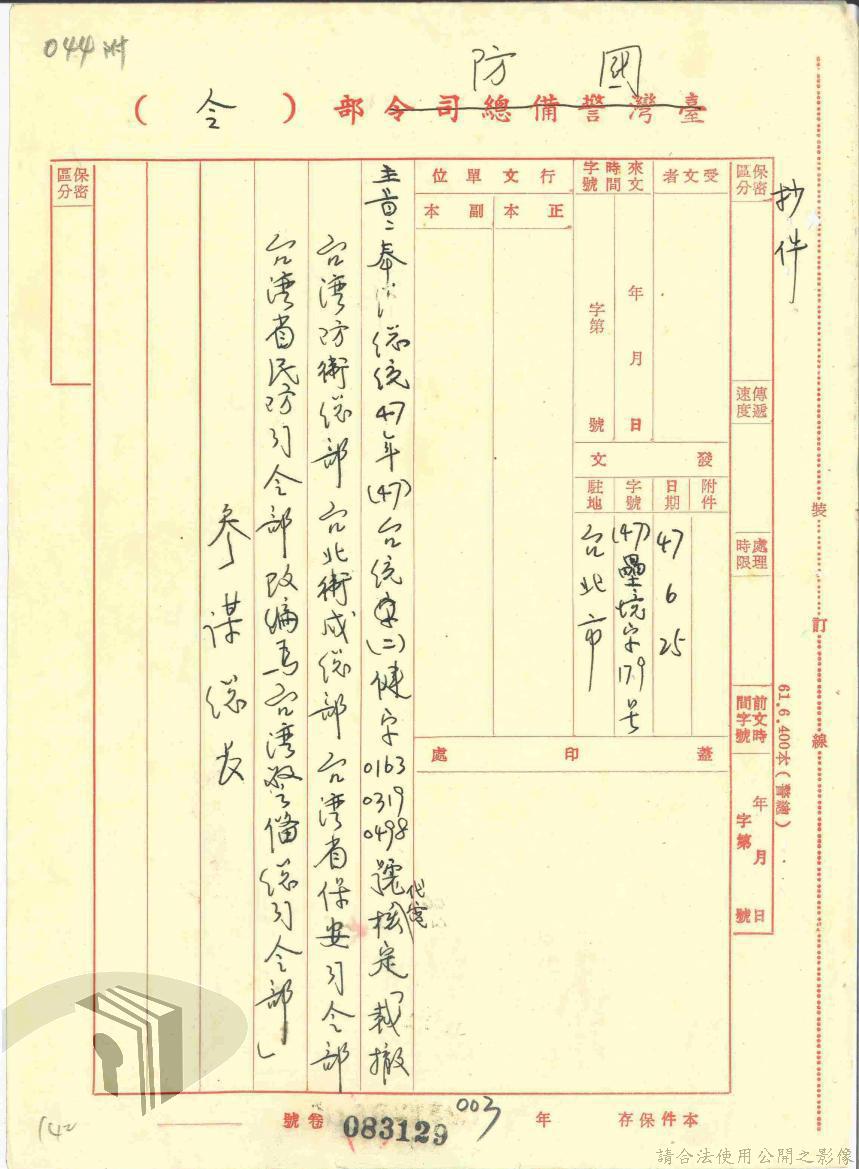 044附
國防
臺灣警備總司令部（令）
抄件
保密區分
傳遞速度
處理時限
前文時間字號
年 月 日
字第 號
受文者
來文時間字號
年 月 日
字第 號
行文單位
正本
副本
發文
附件
日期
47 6 25
字號
(47)壘境字179号
駐地
台北市
蓋印處
主旨：奉 总统47年(47)台统字(二)健字0163 0319 0498號代電核定「裁撤
台湾防衛总部 台北衛戍总部 台湾省保安司令部
台湾省民防司令部改编為台湾警備总司令部」
參謀总长
保密區分
裝
訂
線
61.6.400本(警總)
本件保存 年
003
卷號
083129
142
請合法使用公開之影像